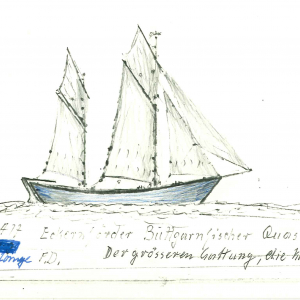 Eckernförder Büttgarnfischer Quas
F.D. Der grösseren Gattung, die